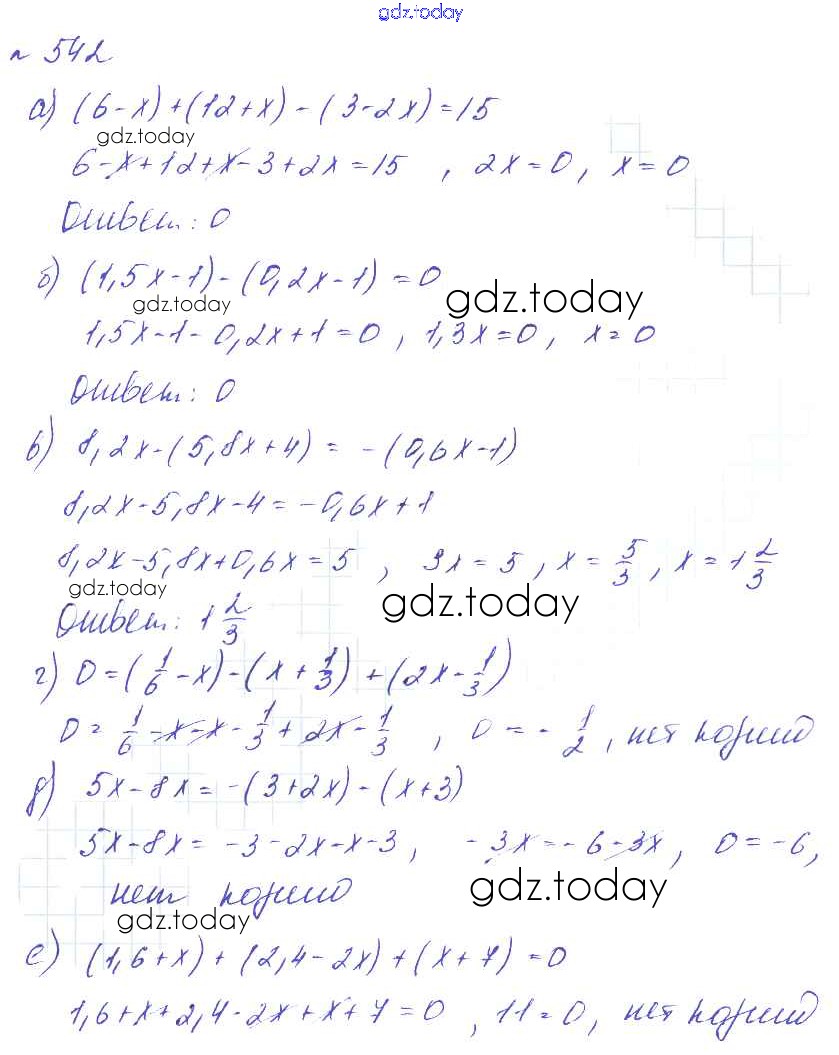 gdz.today
n 542
а) (6-x)+(12+x)-(3-2x)=15
gdz.today
6-x+12+x-3+2x=15 , 2x=0, x=0
Ответ: 0
б) (1,5x-1)-(0,2x-1)=0
gdz.today gdz.today
1,5x-1-0,2x+1=0, 1,3x=0, x=0
Ответ: 0
в) 8,2x-(5,8x+4) = -(0,6x-1)
8,2x-5,8x-4=-0,6x+1
8,2x-5,8x+0,6x=5 , 3x=5, x=5/3, x=1 2/3
gdz.today gdz.today
Ответ: 1 2/3
г) 0=(1/6-x)-(x+1/3)+(2x-1/3)
0=1/6-x-x-1/3+2x-1/3 , 0=-1/2, нет корней
д) 5x-8x=-(3+2x)-(x+3)
5x-8x= -3-2x-x-3, -3x=-6-3x, 0=-6,
нет корней gdz.today
gdz.today
е) (1,6+x)+(2,4-2x)+(x+7)=0
1,6+x+2,4-2x+x+7=0 , 11=0, нет корней